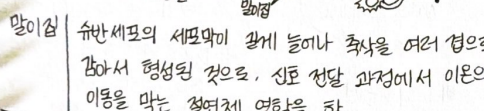 말이집
말이집 슈반세포의 세포막이 길게 늘어나 축삭을 여러 겹으
감아서 형성된 것으로, 신호 전달 과정에서 이온으
이동을 막는 절연체 역할을 함